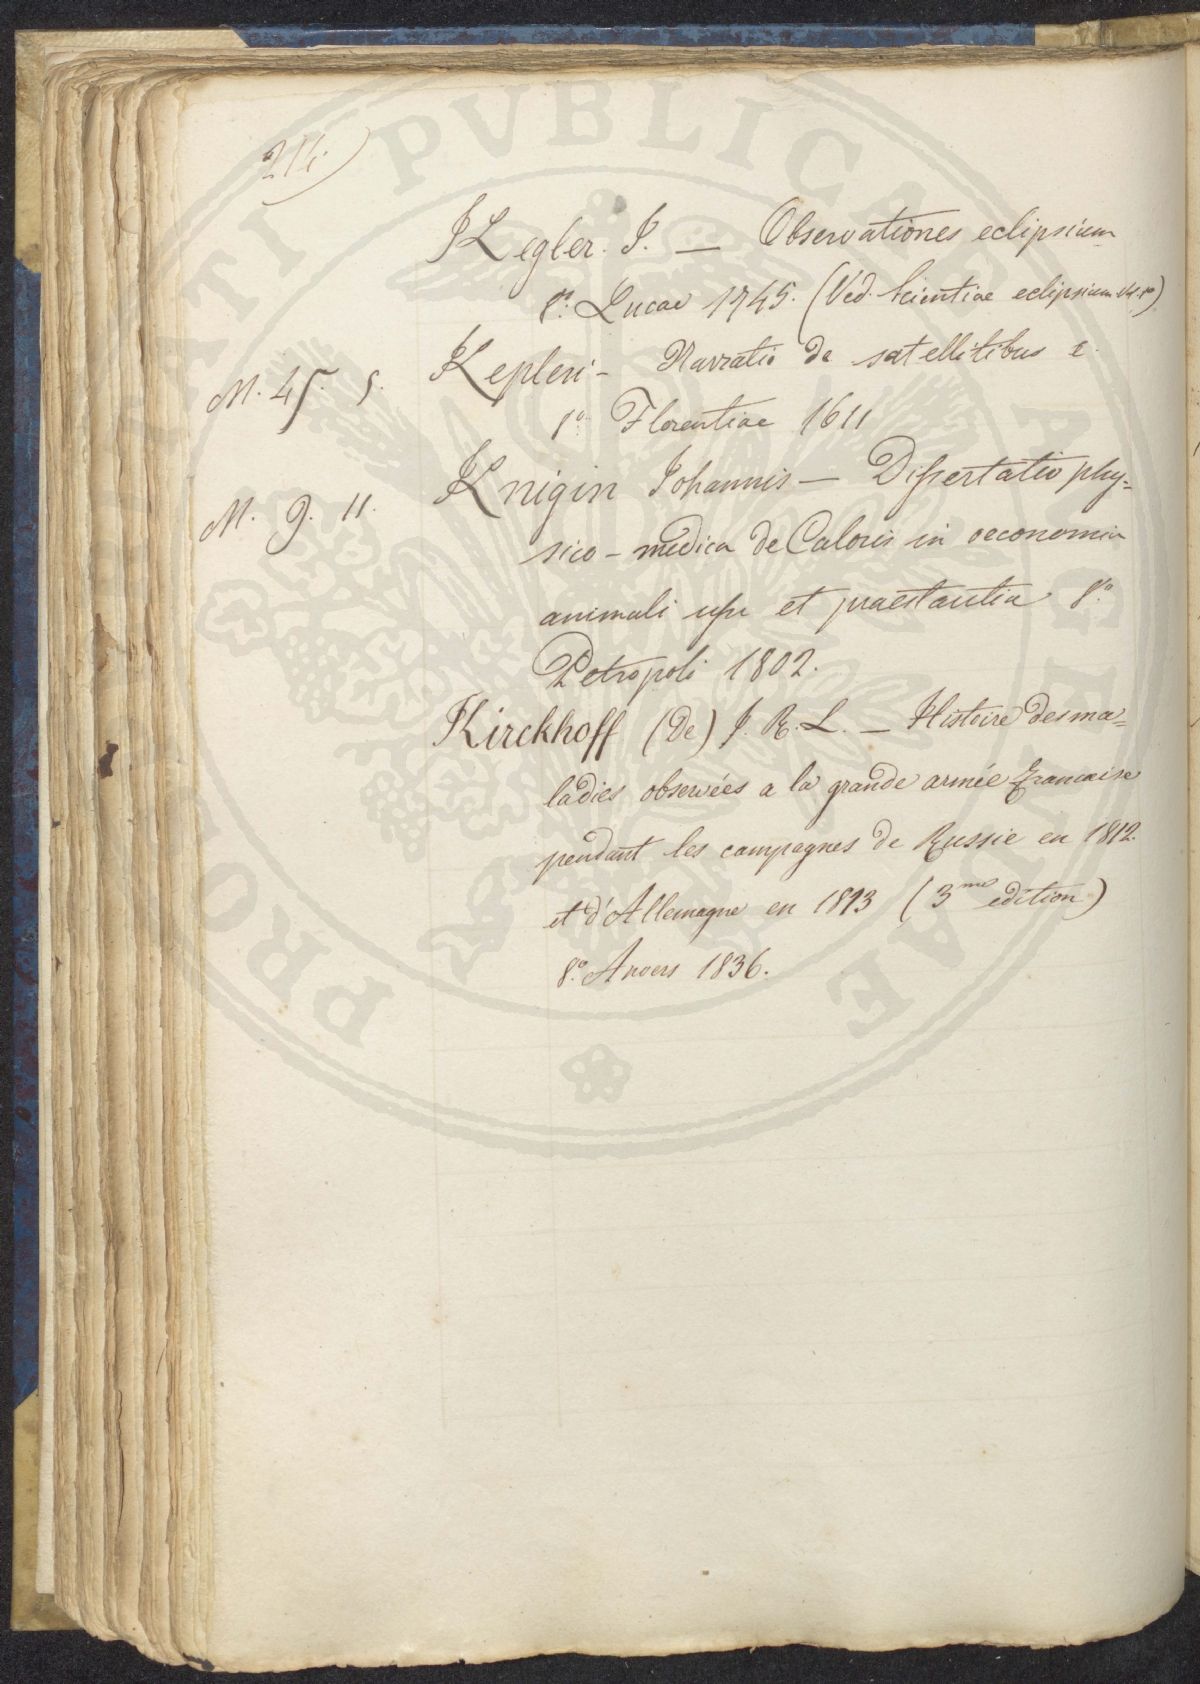 214)
Kegler. I. — Observationes eclipsium
8.º Lucae 1745. (Ved. Scientiae eclipsium
Kepleri - Narratio de satellitibus
M. 45. 5.
Florentiae 1611
Knigin Iohannis — Dissertatio phy=
M. 9. 11.
sico - medica de Caloris in oeconomia
animali usu et praestantia 8.º
Petropoli 1802.
Kirckhoff (De) J. R. L. — Histoire des ma=
ladies observées a la grande armée francaise
pendant les campagnes de Russie en 1812.
et d'Allemagne en 1813 (3me edition)
8.º Anvers 1836.
PROBITATI PVBLICAE